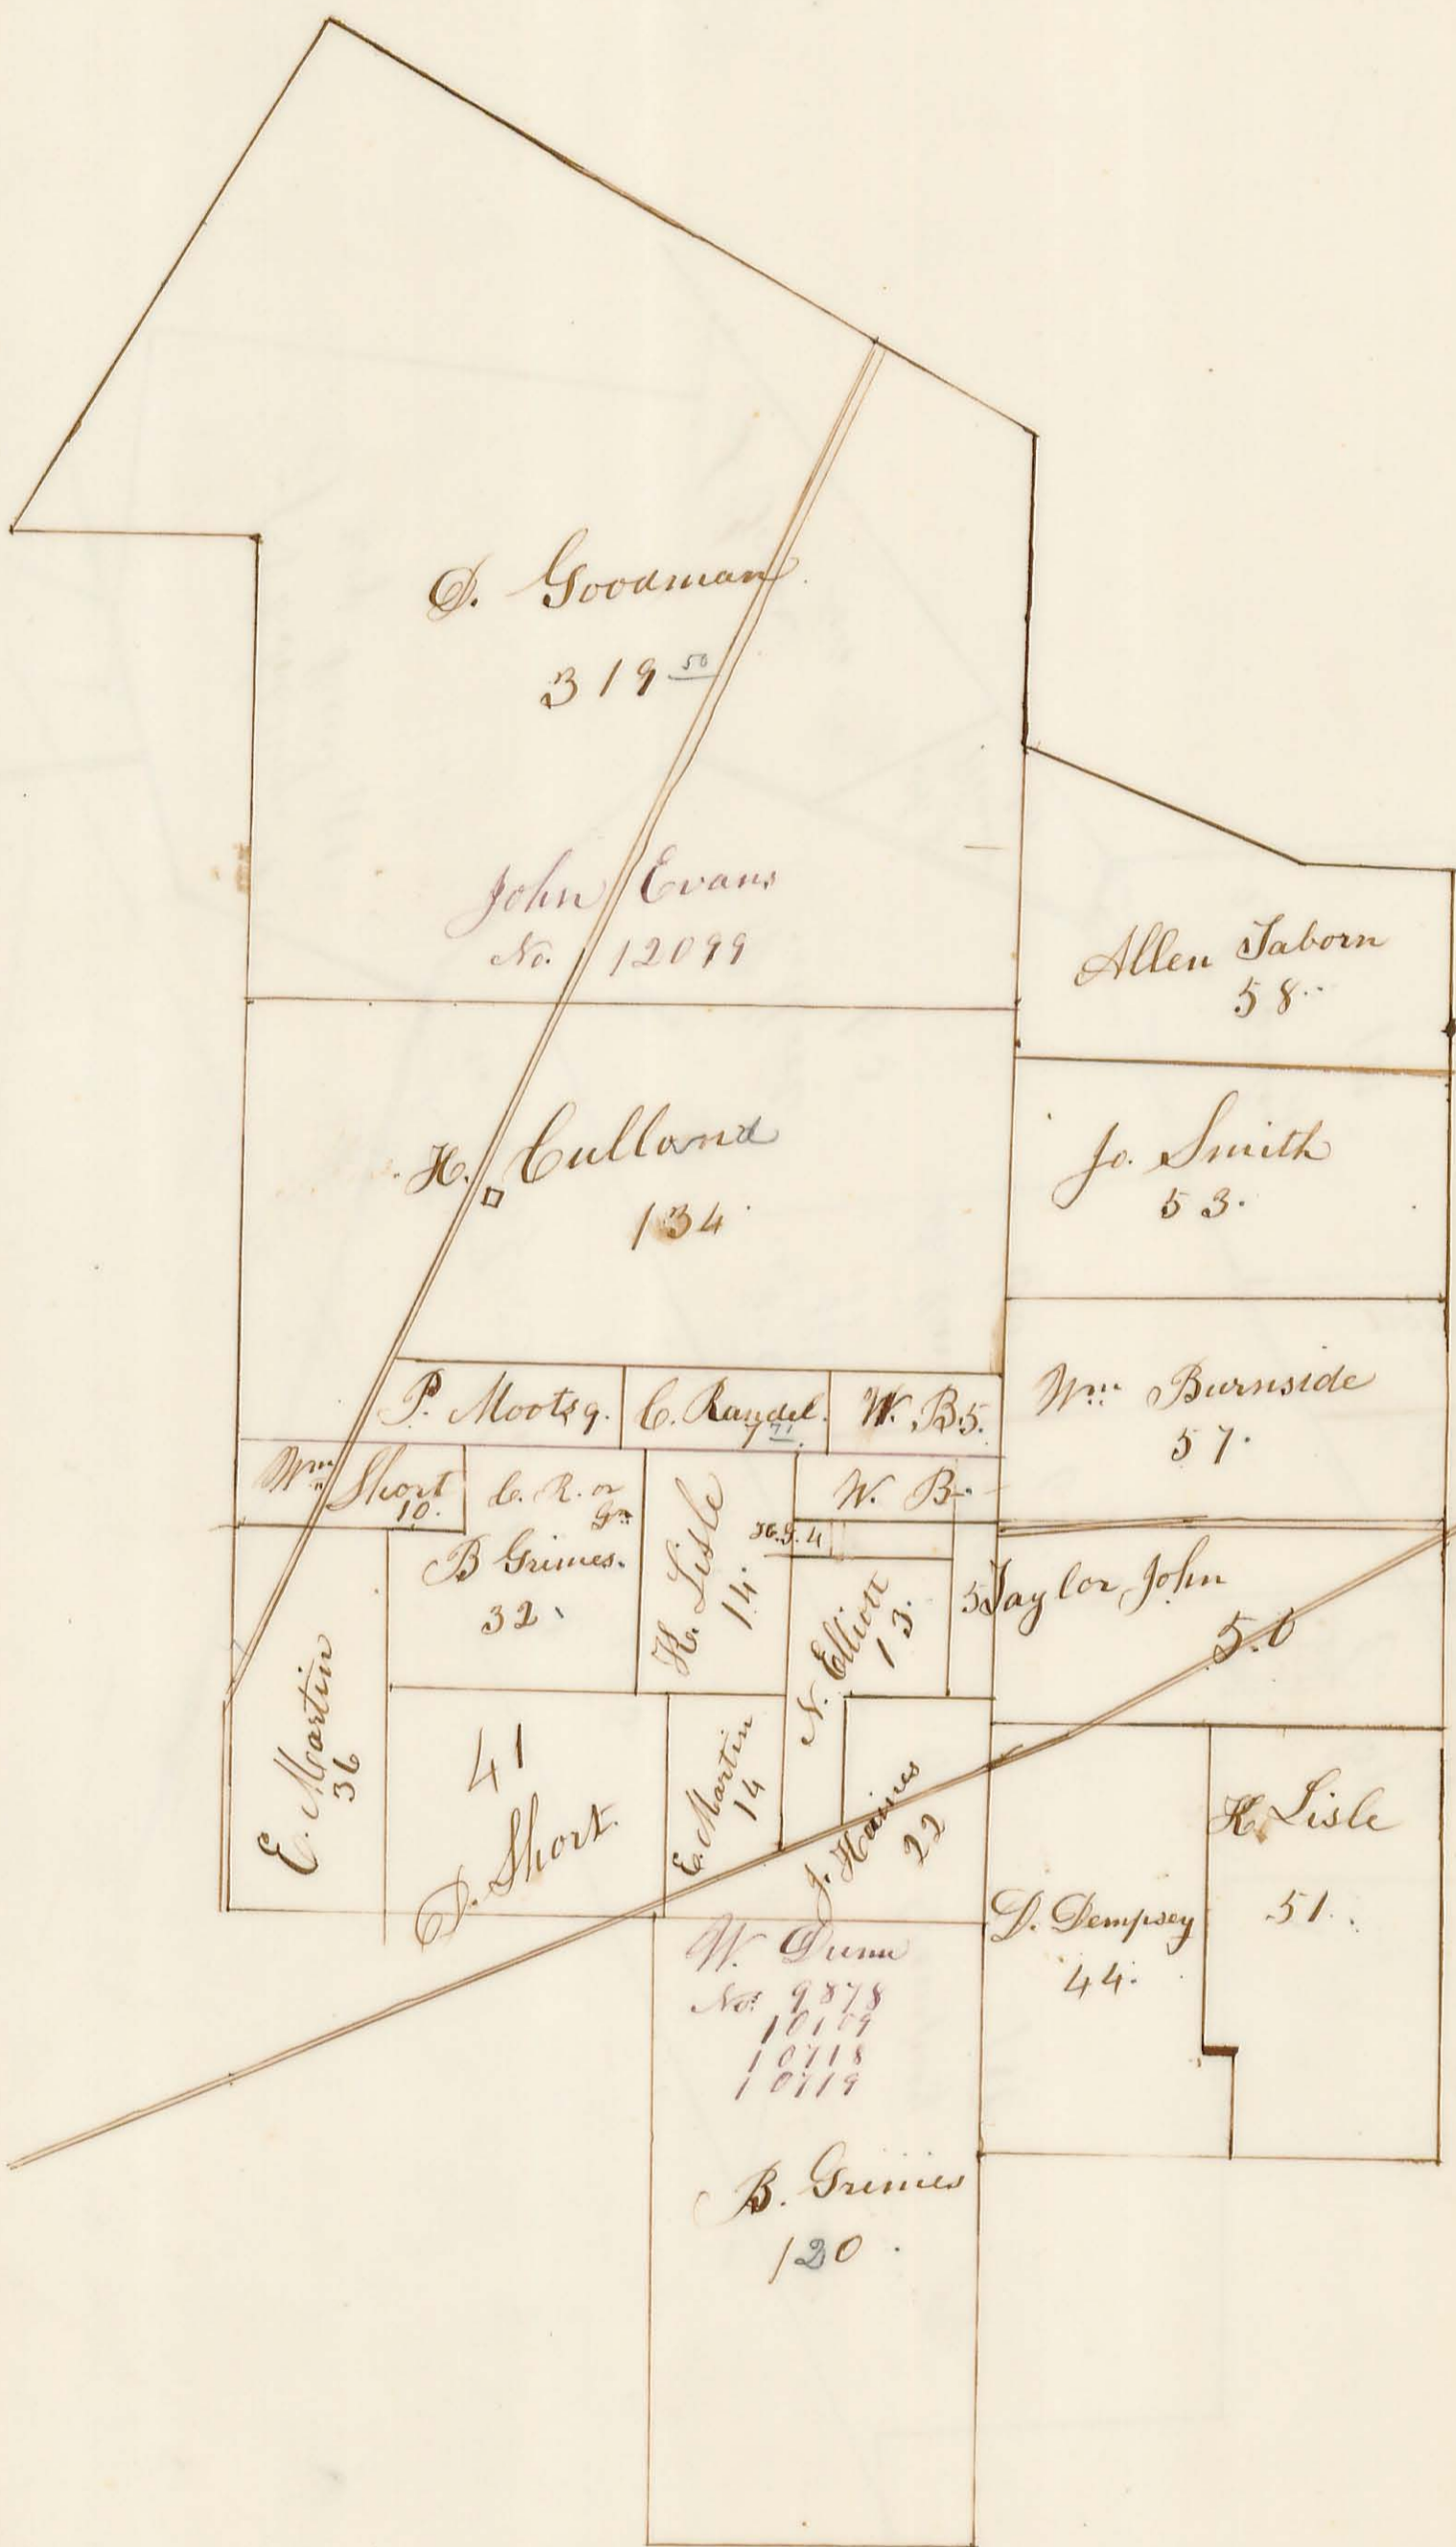 D. Goodman
319 50
John Evans
No. 12099
Allen Taborn
58
H. Culland
134
Jo. Smith
53.
P. Moots 9.
C. Randel.
W. B. 5.
Wm Burnside
57.
Wm Short
10.
C. R. or
B Grimes.
32
K. Lisle
14.
W. B.
4
N. Elliott
13.
5
Taylor John
E. Martin
36
41
D. Short.
E. Martin
14
J. Haines
22
K Lisle
51.
D. Dempsey
44.
W. Dunn
Nos 9878
10109
10718
10719
B. Grimes
120.